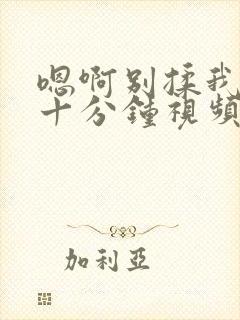 嗯啊别揉我
十分鐘視頻
加利亞